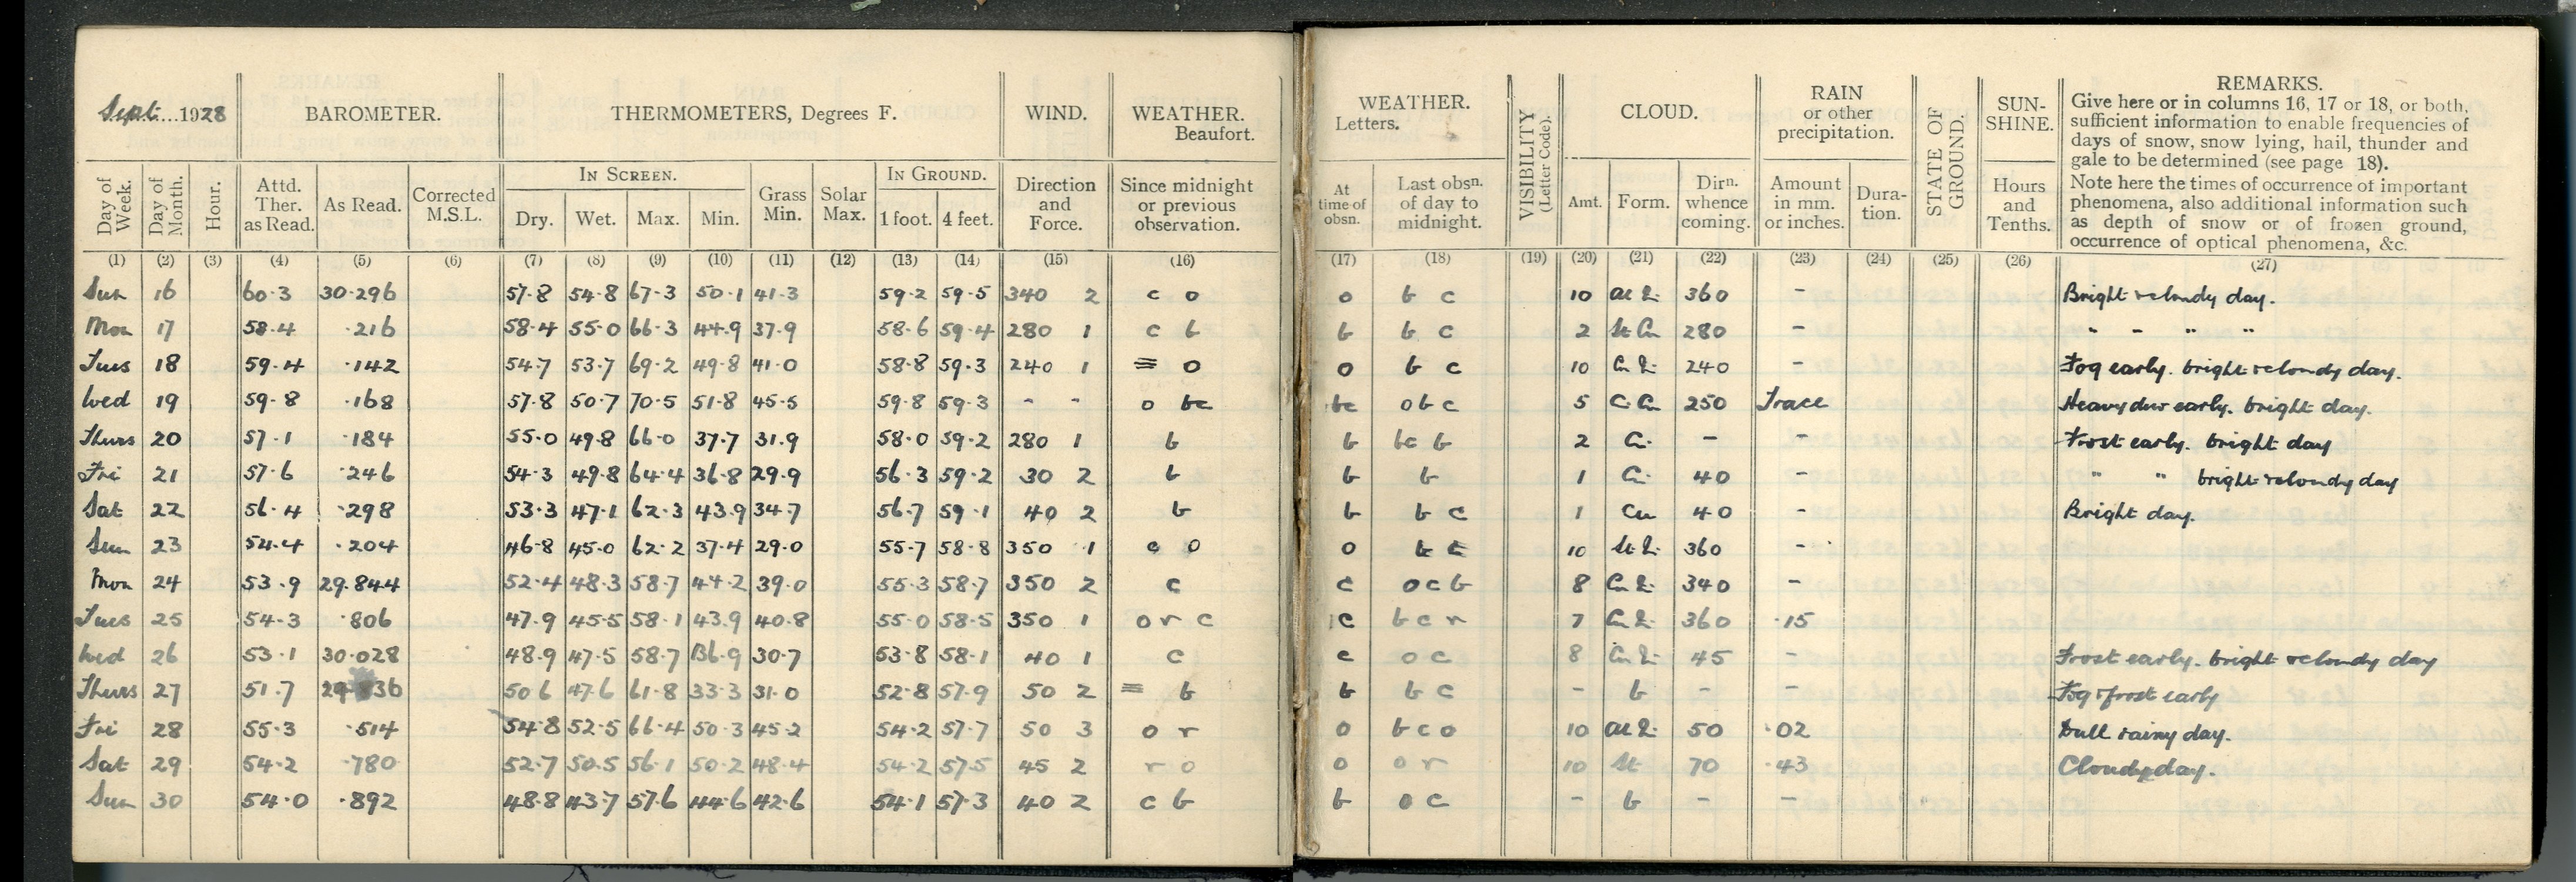 Sept. 1928 BAROMETER. THERMOMETERS, Degrees F. WIND. WEATHER. Beaufort. WEATHER. Letters. VISIBILITY (Letter Code). CLOUD. RAIN or other precipitation. STATE OF GROUND. SUN-SHINE. REMARKS.
Give here or in columns 16, 17 or 18, or both,
sufficient information to enable frequencies of
days of snow, snow lying, hail, thunder and
gale to be determined (see page 18).
Note here the times of occurrence of important
phenomena, also additional information such
as depth of snow or of frozen ground,
occurrence of optical phenomena, &c.
Day of Week. Day of Month. Hour. Attd. Ther. as Read. As Read. Corrected M.S.L. IN SCREEN. Dry. Wet. Max. Min. Grass Min. Solar Max. IN GROUND. 1 foot. 4 feet. Direction and Force. Since midnight or previous observation. At time of obsn. Last obsn. of day to midnight. Amt. Form. Dirn. whence coming. Amount in mm. or inches. Dura-tion. Hours and Tenths.
(1) (2) (3) (4) (5) (6) (7) (8) (9) (10) (11) (12) (13) (14) (15) (16) (17) (18) (19) (20) (21) (22) (23) (24) (25) (26) (27)
Sun 16 60.3 30.296 57.8 54.8 67.3 50.1 41.3 59.2 59.5 340 2 c o o b c 10 360 - Bright & cloudy day.
Mon 17 58.4 .216 58.4 55.0 66.3 44.9 37.9 58.6 59.4 280 1 c b b b c 2 St Cu 280 - " - " "
Tues 18 59.4 .142 54.7 53.7 69.2 49.8 41.0 58.8 59.3 240 1 ≡ o o b c 10 240 - Fog early. bright & cloudy day.
Wed 19 59.8 .168 57.8 50.7 70.5 51.8 45.5 59.8 59.3 - - o bc bc o b c 5 250 Trace Heavy dew early. bright day.
Thurs 20 57.1 .184 55.0 49.8 66.0 37.7 31.9 58.0 59.2 280 1 b b bc b 2 Ci. - - Frost early. bright day
Fri 21 57.6 .246 54.3 49.8 64.4 36.8 29.9 56.3 59.2 30 2 b b b 1 Ci. 40 - " " bright & cloudy day
Sat 22 56.4 .298 53.3 47.1 62.3 43.9 34.7 56.7 59.1 40 2 b b b c 1 Cu 40 - Bright day.
Sun 23 54.4 .204 46.8 45.0 62.2 37.4 29.0 55.7 58.8 350 1 c o o 10 360 -
Mon 24 53.9 29.844 52.4 48.3 58.7 44.2 39.0 55.3 58.7 350 2 c c o c b 8 340 -
Tues 25 54.3 .806 47.9 45.5 58.1 43.9 40.8 55.0 58.5 350 1 o r c c b c r 7 360 .15
Wed 26 53.1 30.028 48.9 47.5 58.7 36.9 30.7 53.8 58.1 40 1 c c o c 8 45 - Frost early. bright & cloudy day
Thurs 27 51.7 50.6 47.6 61.8 33.3 31.0 52.8 57.9 50 2 ≡ b b b c - b - - Fog & frost early
Fri 28 55.3 .514 54.8 52.5 66.4 50.3 45.2 54.2 57.7 50 3 o r o b c o 10 50 .02 Dull rainy day.
Sat 29 54.2 .780 52.7 50.5 56.1 50.2 48.4 54.2 57.5 45 2 r o o o r 10 St 70 .43 Cloudy day.
Sun 30 54.0 .892 48.8 43.7 57.6 44.6 42.6 54.1 57.3 40 2 c b b o c - b - -